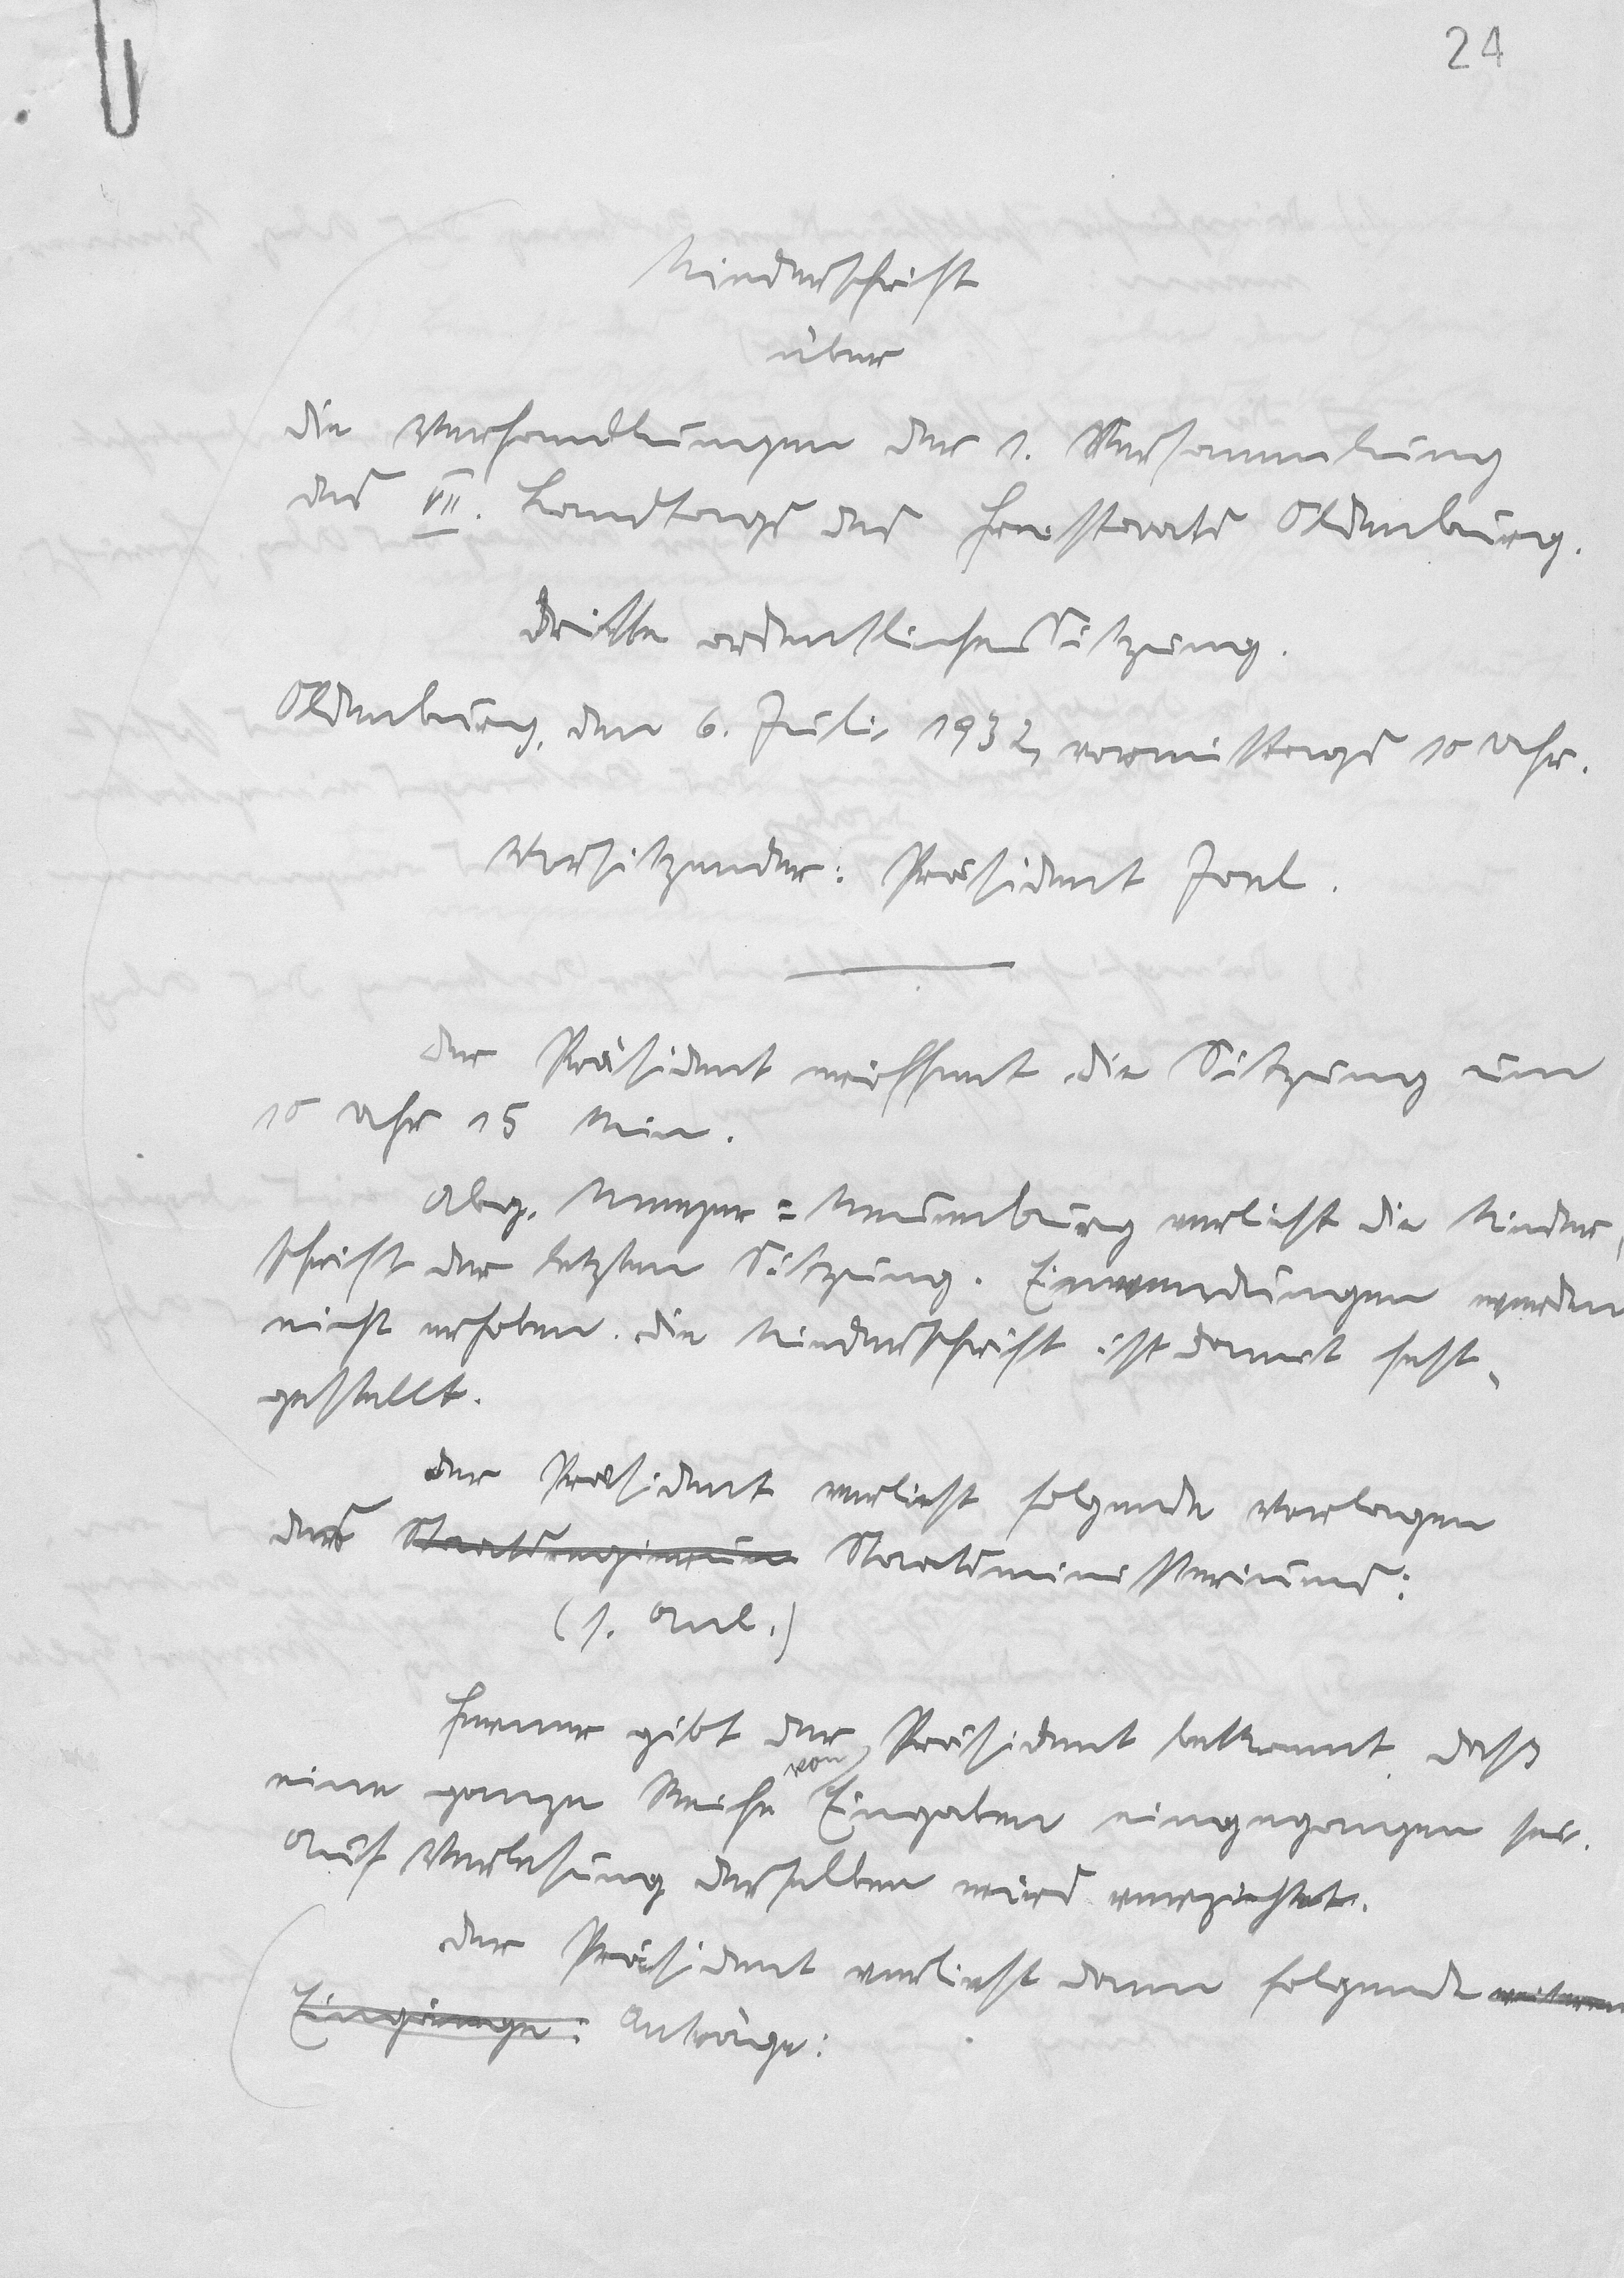 24
Niederschrift
über
die Verhandlungen der 1. Versammlung
des VII. Landtags des Freistaats Oldenburg.
Dritte ordentliche Sitzung.
Oldenburg, den 6. Juli 1932, vormittags 10 Uhr.
Vorsitzender: Präsident Joel.
Der Präsident eröffnet die Sitzung um
10 Uhr 15 Min.
Abg. Meyer=Neuenburg verliest die Nieder-
schrift der letzten Sitzung. Einwendungen werden
nicht erhoben. Die Niederschrift ist damit fest-
gestellt.
Der Präsident verliest folgende Vorlagen
des Staatsministeriums:
(s. Anl.)
Ferner gibt der Präsident bekannt, daß
eine ganze Reihe von Eingaben eingegangen sei.
Auf Verlesung derselben wird verzichtet.
Der Präsident verliest dann folgende weiteren
Eingänge: Anträge: